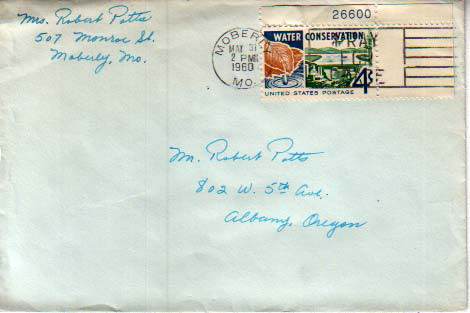 Mrs. Robert Potts
507 Monroe St.
Moberly, Mo.
26600
MOBERLY
MAY 31
2 PM
1960
MO.
WATER CONSERVATION
PRAY
4¢
UNITED STATES POSTAGE
Mr. Robert Potts
802 W. 5th Ave.
Albany, Oregon